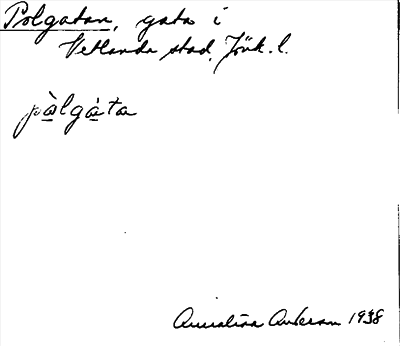 Polgatan, gata i
Vetlanda stad, Jönk. l.
pàlgáta
Annalisa Anderson 1938